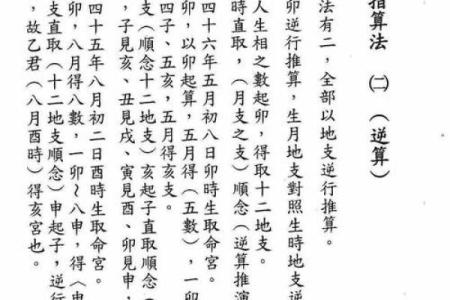 指算法 ㈡ (逆算)
法有二,全部以地支逆行推算。
卯逆行推算,生月地支對照生時地支逆
時直取,(月支之支)順念(逆算推演
人生相之數起卯,得取十二地支。
四十六年五月初八日卯時生取命宮。
卯,以卯起算,五月得(五數),一卯
四子、五亥,五月得亥支。
支(順念十二地支)亥起子直取順念(
,子見亥、丑見戌、寅見酉、卯見申,
四十五年八月初二日酉時生取命宮。
卯,八月得八數,一卯~八申,得(申
支直取(十二地支順念)申起子,逆行
,故乙君(八月酉時)得亥宮也。